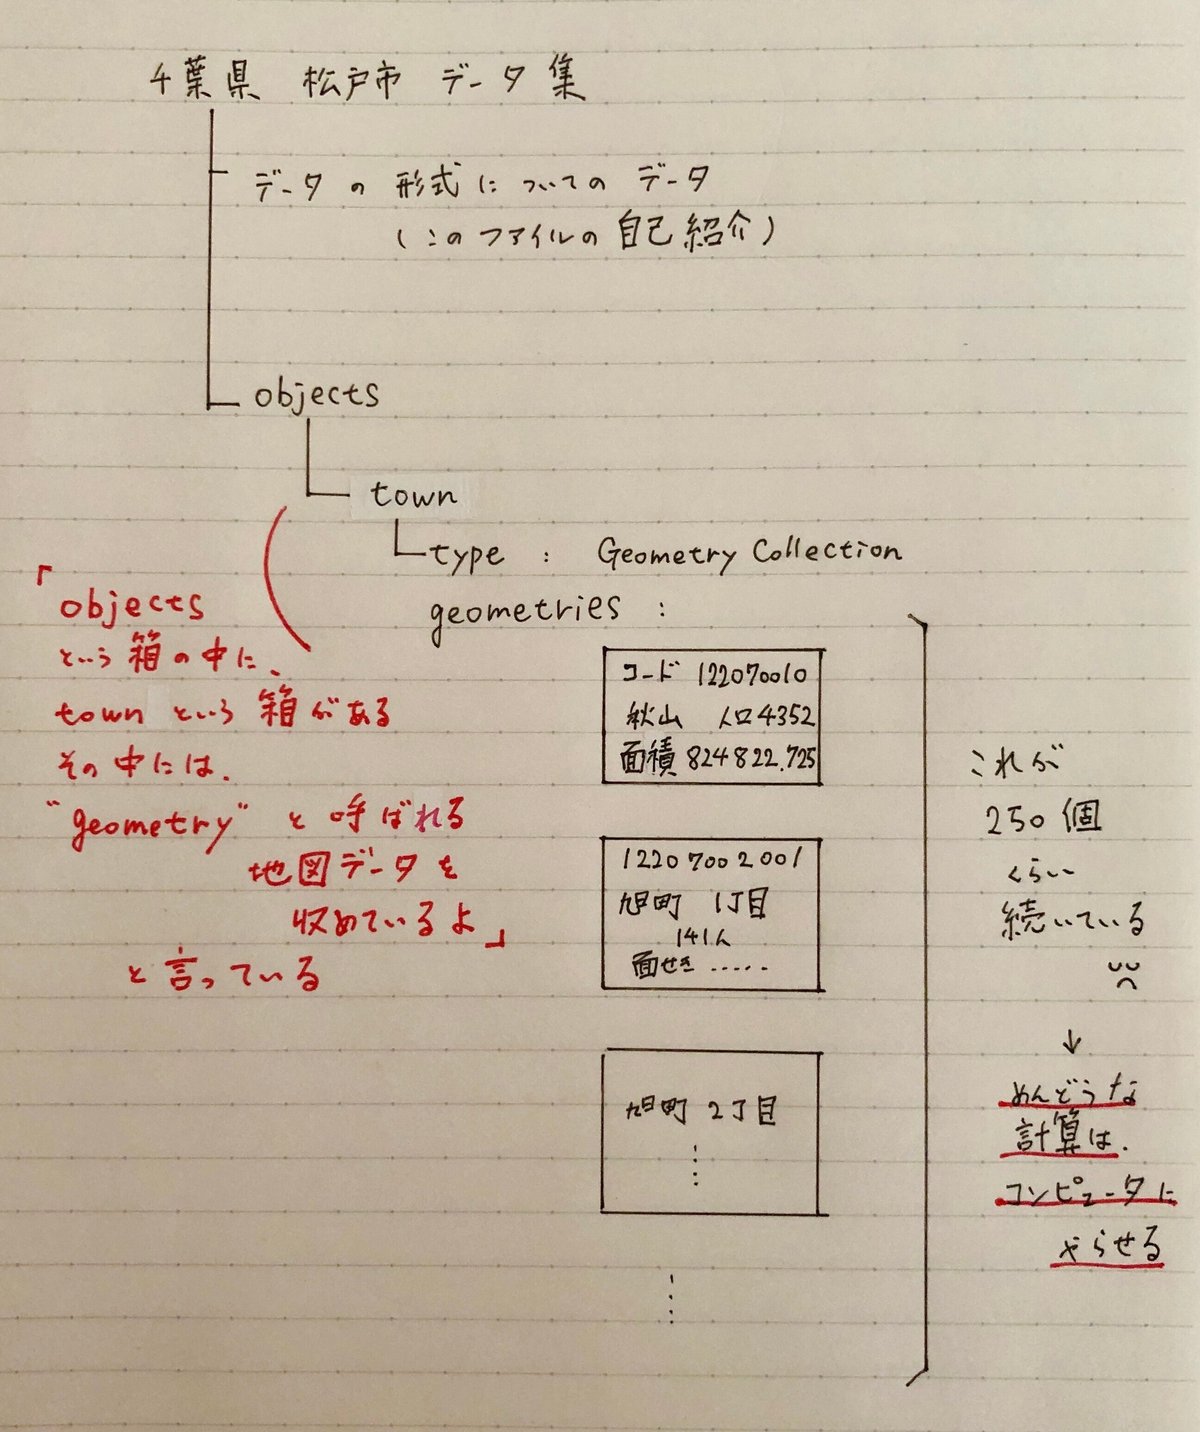 千葉県 松戸市 データ集
データの形式についてのデータ
(このファイルの自己紹介)
objects
town
type : Geometry Collection
geometries :
「objects
という箱の中に、
townという箱がある
その中には、
"geometry" と呼ばれる
地図データを
収めているよ」
と言っている
コード 122070010
秋山 人口4352
面積 824822.725
12207002001
旭町 1丁目
141人
面せき .....
旭町 2丁目
⋮
⋮
これが
250個
くらい
続いている
↓
めんどうな
計算は、
コンピュータに
やらせる